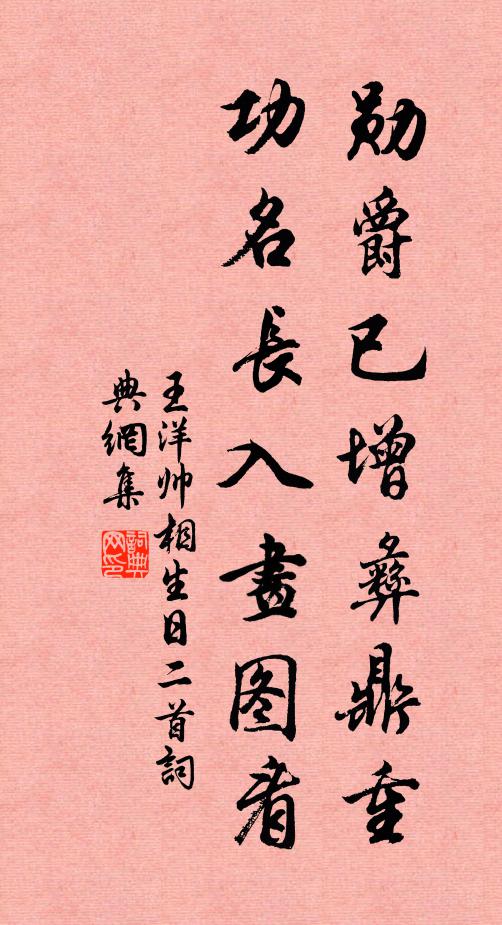 勋爵已增彝鼎重
功名長入畫图看
王洋帅相生日二首詞
典網集
詞典
网印